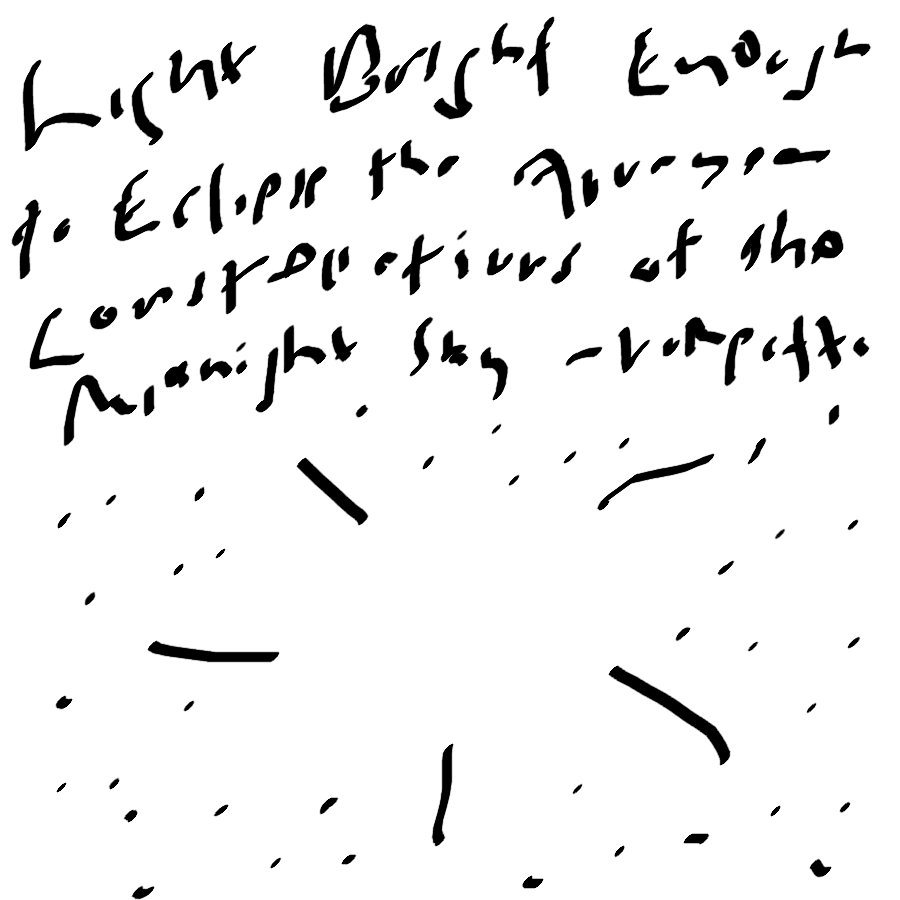 Light Bright Enough
to Eclipse the
Constellations of the
Midnight Sky